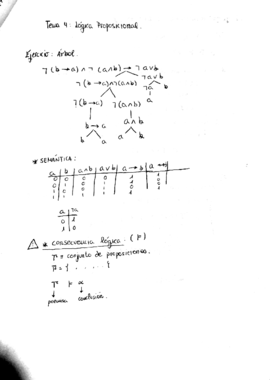 Tema 4: Lógica Proposicional.
Ejercicio: Árbol.
¬(b→a)∧¬(a∧b)→¬a∨b
¬(b→a)∧¬(a∧b)   ¬a∨b
¬a   b
¬(b→a)   ¬(a∧b)   a
b→a   a∧b
b   a   a   b
* SEMÁNTICA:
a | b | a∧b | a∨b | a→b | a↔b
0 0 0 0 1 1
0 1 0 1 1 0
1 0 0 1 0 0
1 1 1 1 1 1
a | ¬a
0 | 1
1 | 0
* CONSECUENCIA lógica. (⊨)
= conjunto de proposiciones.
= { . . . . }
premisas   conclusión.